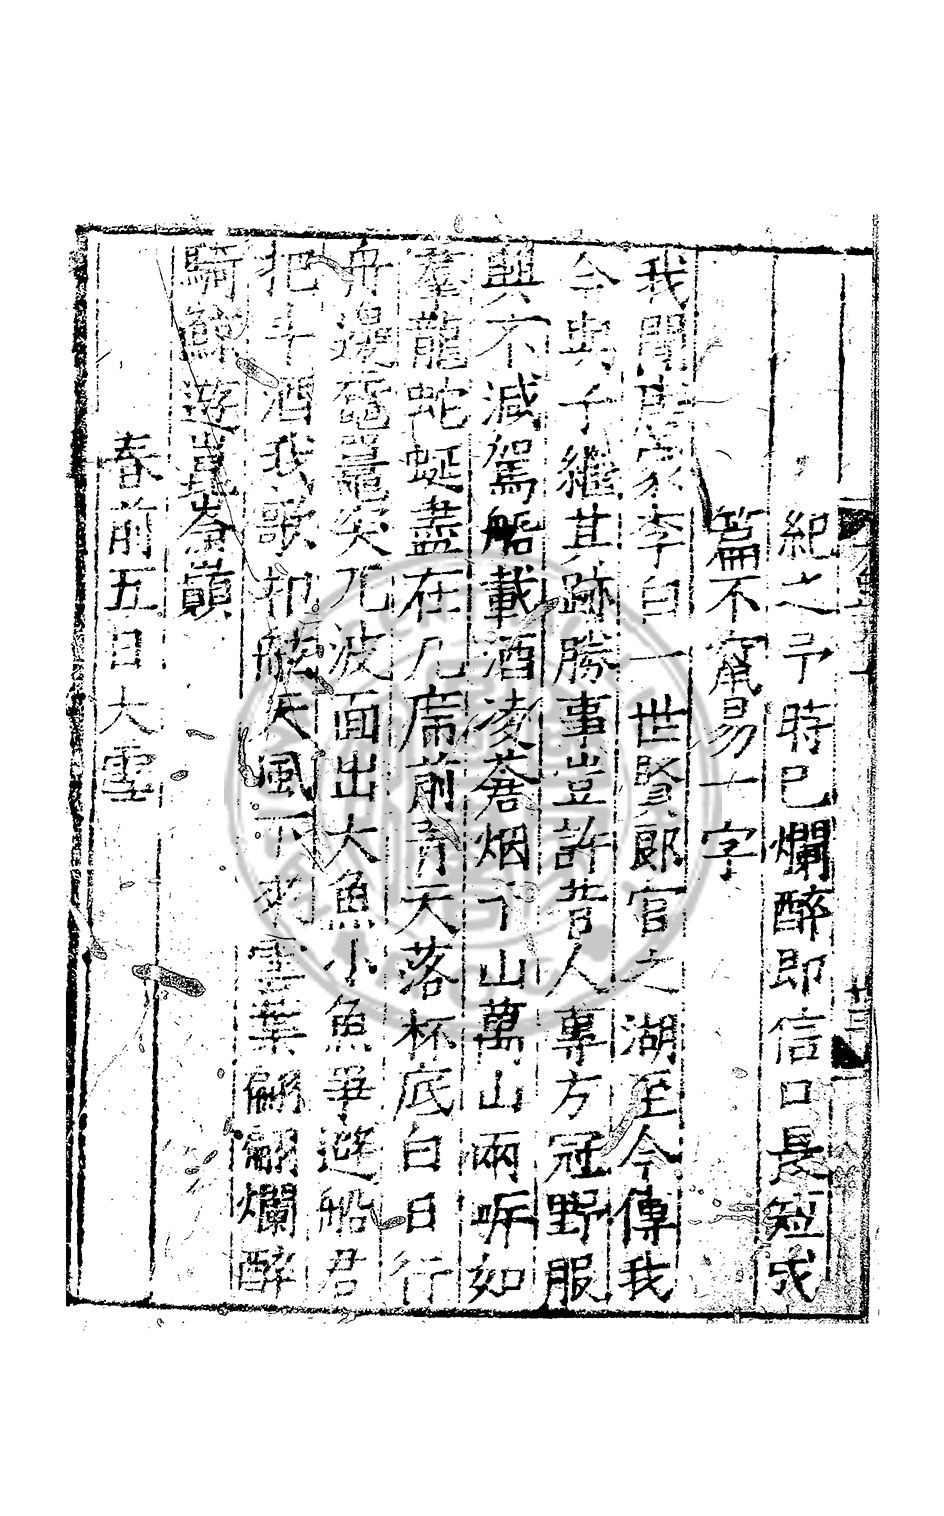 紀之予時已爛醉即信口長短成
篇不竄易一字
我聞唐家李白一世賢郎官之湖至今傳我
今與子繼其跡勝事豈許昔人專方冠野服
興不減駕船載酒凌蒼烟下山萬山兩岸如
羣龍蛇蜒盡在几席前青天落杯底白日行
舟邊黿鼉突兀波面出大魚小魚爭避船君
把斗酒我歌扣舷天風下雲葉翩翩爛醉
騎鯨遊崑崙巔
春前五日大雪